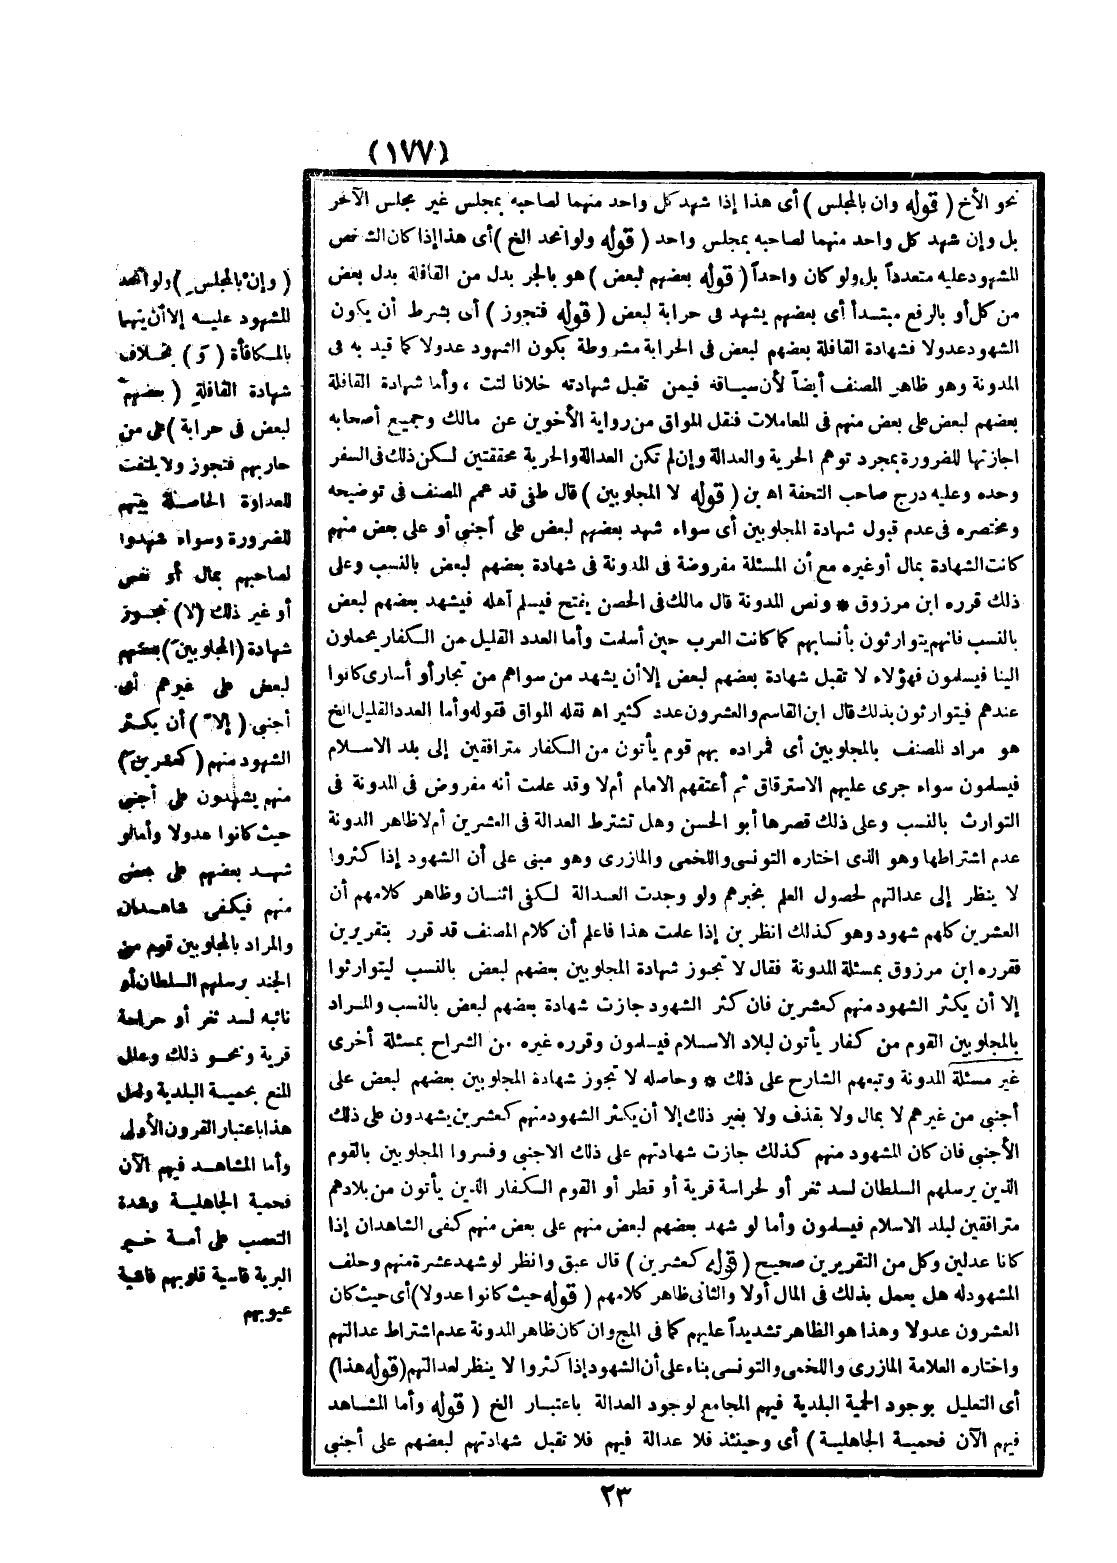 (١٧٧)
نحو الأخ ( قوله وان بالمجلس ) أى هذا إذا شهد كل واحد منهما لصاحبه بمجلس غير مجلس الآخر
بل وإن شهد كل واحد منهما لصاحبه بمجلس واحد ( قوله ولو اتحد الخ ) أى هذا إذا كان الشخص
المشهود عليه متعدداً بل ولو كان واحداً ( قوله بعضهم لبعض ) هو بالجر بدل من القافلة بدل بعض
من كل أو بالرفع مبتدأ أى بعضهم يشهد فى حرابة لبعض ( قوله فتجوز ) أى بشرط أن يكون
الشهود عدولا فشهادة القافلة بعضهم لبعض فى الحرابة مشروطة بكون الشهود عدولا كما قيد به فى
المدونة وهو ظاهر المصنف أيضاً لأن سياقه فيمن تقبل شهادته خلافا لتت ، وأما شهادة القافلة
بعضهم لبعض على بعض منهم فى المعاملات فنقل المواق من رواية الأخوين عن مالك وجميع أصحابه
اجازتها للضرورة بمجرد توهم الحرية والعدالة وإن لم تكن العدالة والحرية محققتين لكن ذلك فى السفر
وحده وعليه درج صاحب التحفة اه بن ( قوله لا المجلوبين ) قال طفى قد عمم المصنف فى توضيحه
ومختصره فى عدم قبول شهادة المجلوبين أى سواء شهد بعضهم لبعض على أجنبي أو على بعض منهم
كانت الشهادة بمال أو غيره مع أن المسئلة مفروضة فى المدونة فى شهادة بعضهم لبعض بالنسب وعلى
ذلك قرره ابن مرزوق * ونص المدونة قال مالك فى الحصن يفتح فيسلم أهله فيشهد بعضهم لبعض
بالنسب فانهم يتوارثون بأنسابهم كما كانت العرب حين أسلمت وأما العدد القليل من الكفار يحملون
الينا فيسلمون فهؤلاء لا تقبل شهادة بعضهم لبعض إلا أن يشهد من سواهم من تجار أو أسارى كانوا
عندهم فيتوارثون بذلك قال ابن القاسم والعشرون عدد كثير اه نقله المواق فقوله وأما العدد القليل الخ
هو مراد المصنف بالمجلوبين أى فمراده بهم قوم يأتون من الكفار مترافقين إلى بلد الاسلام
فيسلمون سواء جرى عليهم الاسترقاق ثم أعتقهم الامام أم لا وقد علمت أنه مفروض فى المدونة فى
التوارث بالنسب وعلى ذلك قصرها أبو الحسن وهل تشترط العدالة فى العشرين أم لا ظاهر المدونة
عدم اشتراطها وهو الذى اختاره التونسى واللخمى والمازرى وهو مبنى على أن الشهود إذا كثروا
لا ينظر إلى عدالتهم لحصول العلم بخبرهم ولو وجدت العدالة لكفى اثنان وظاهر كلامهم أن
العشرين كلهم شهود وهو كذلك انظر بن إذا علمت هذا فاعلم أن كلام المصنف قد قرر بتقريرين
فقرره ابن مرزوق بمسئلة المدونة فقال لا تجوز شهادة المجلوبين بعضهم لبعض بالنسب ليتوارثوا
إلا أن يكثر الشهود منهم كعشرين فان كثر الشهود جازت شهادة بعضهم لبعض بالنسب والمراد
بالمجلوبين القوم من كفار يأتون لبلاد الاسلام فيسلمون وقرره غيره من الشراح بمسئلة أخرى
غير مسئلة المدونة وتبعهم الشارح على ذلك * وحاصله لا تجوز شهادة المجلوبين بعضهم لبعض على
أجنبي من غيرهم لا بمال ولا بقذف ولا بغير ذلك إلا أن يكثر الشهود منهم كعشرين يشهدون على ذلك
الأجنبي فان كان المشهود منهم كذلك جازت شهادتهم على ذلك الاجنبى وفسروا المجلوبين بالقوم
الذين يرسلهم السلطان لسد ثغر أو لحراسة قرية أو قطر أو القوم الكفار الذين يأتون من بلادهم
مترافقين لبلد الاسلام فيسلمون وأما لو شهد بعضهم لبعض منهم على بعض منهم كفى الشاهدان إذا
كانا عدلين وكل من التقريرين صحيح ( قوله كعشرين ) قال عبق وانظر لو شهد عشرة منهم وحلف
المشهود له هل يعمل بذلك فى المال أولا والثانى ظاهر كلامهم ( قوله حيث كانوا عدولا ) أى حيث كان
العشرون عدولا وهذا هو الظاهر تشديداً عليهم كما فى المج وان كان ظاهر المدونة عدم اشتراط عدالتهم
واختاره العلامة المازرى واللخمى والتونسى بناء على أن الشهود إذا كثروا لا ينظر لعدالتهم ( قوله هذا )
أى التعليل بوجود الحمية البلدية فيهم المجامع لوجود العدالة باعتبار الخ ( قوله وأما المشاهد
فيهم الآن فحمية الجاهلية ) أى وحينئذ فلا عدالة فيهم فلا تقبل شهادتهم لبعضهم على أجنبي
( وإن بالمجلس ) ولو اتحد
المشهود عليه إلا أن يتهما
بالمكافأة ( و ) بخلاف
شهادة القافلة ( بعضهم
لبعض فى حرابة ) على من
حاربهم فتجوز ولا يلتفت
للعداوة الحاصلة بينهم
للضرورة وسواء شهدوا
لصاحبهم بمال أو نفس
أو غير ذلك ( لا ) تجوز
شهادة ( المجلوبين ) بعضهم
لبعض على غيرهم أى
أجنبي ( إلا ) أن يكثر
الشهود منهم ( كعشرين )
منهم يشهدون على أجنبي
حيث كانوا عدولا وأما لو
شهد بعضهم على بعض
منهم فيكفى شاهدان
والمراد بالمجلوبين قوم من
الجند يرسلهم السلطان أو
نائبه لسد ثغر أو حراسة
قرية ونحو ذلك وعلل
المنع بحمية البلدية ولعل
هذا باعتبار القرون الأولى
وأما المشاهد فيهم الآن
فحمية الجاهلية وشدة
التعصب على أمة خير
البرية قاسية قلوبهم فاشية
عيوبهم
٢٣